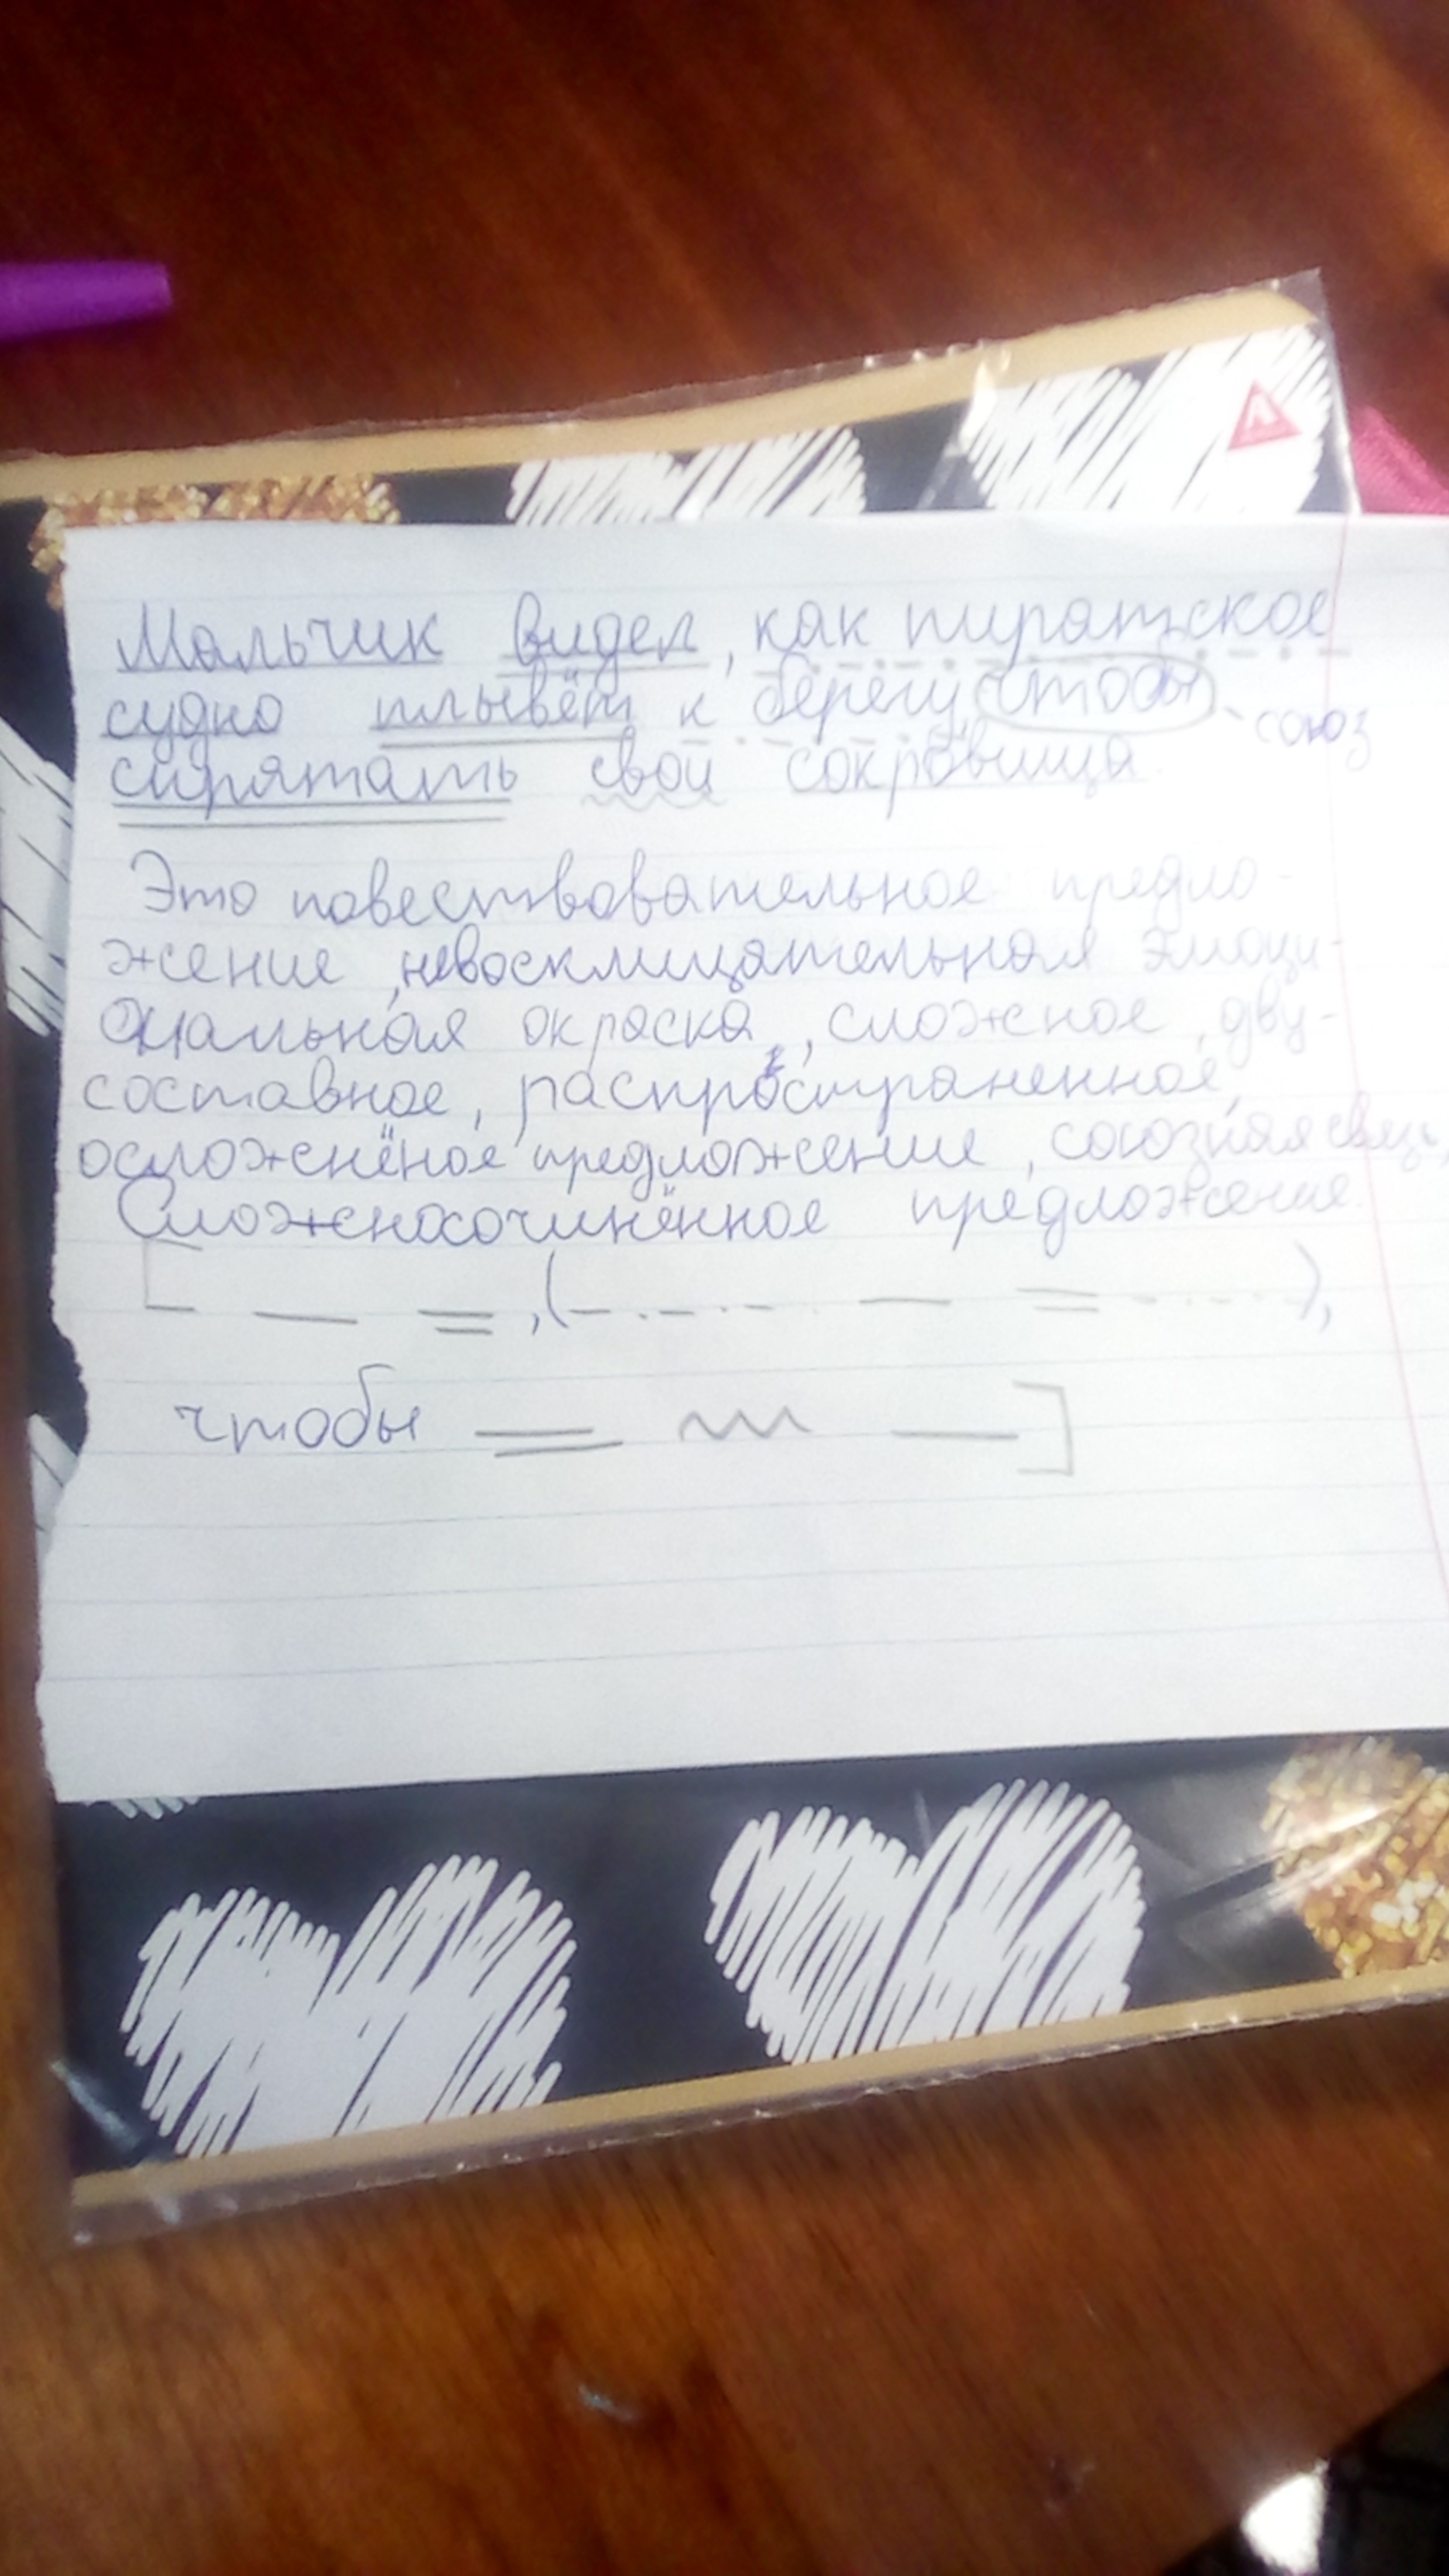 Мальчик видел, как пиратское
судно плывёт к берегу, чтобы
союз
спрятать свои сокровища.
Это повествовательное предло-
жение, невосклицательная эмоци-
ональная окраска, сложное, дву-
составное, распространенное,
осложнёное предложение, союзная связь,
Сложносочинённое предложение.
[ — =, (—.—.— — = —.—.), 
чтобы = ~~~ — ]